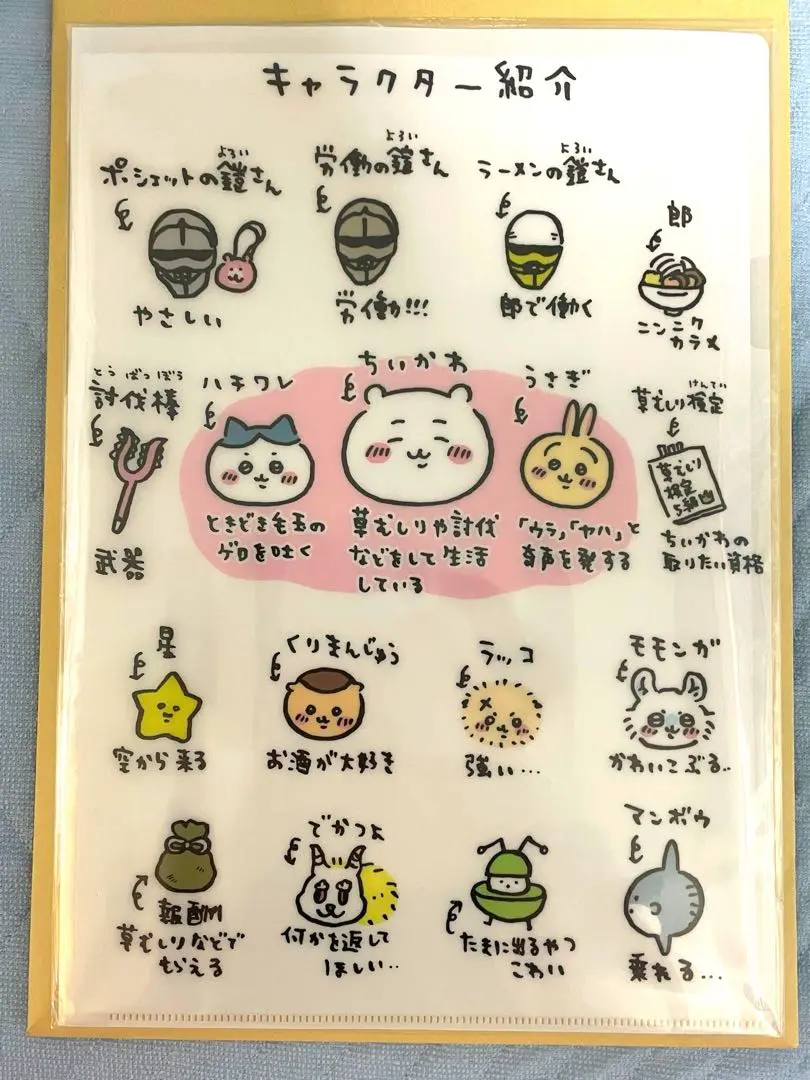 キャラクター紹介
ポシェットの鎧さん
よろい
やさしい
労働の鎧さん
よろい
労働!!!
ラーメンの鎧さん
よろい
郎で働く
郎
ニンニク
カラメ
とうばつぼう
討伐棒
武器
ハチワレ
ときどき毛玉の
ゲロを吐く
ちいかわ
草むしりや討伐
などをして生活
している
うさぎ
「ウラ」「ヤハ」と
奇声を発する
けんてい
草むしり検定
草むしり
検定
5級
ちいかわの
取りたい資格
星
空から来る
くりまんじゅう
お酒が大好き
ラッコ
強い…
モモンガ
かわいこぶる..
報酬
草むしりなどで
もらえる
でかつよ
何かを返して
ほしい..
たまに出るやつ
こわい
マンボウ
乗れる…